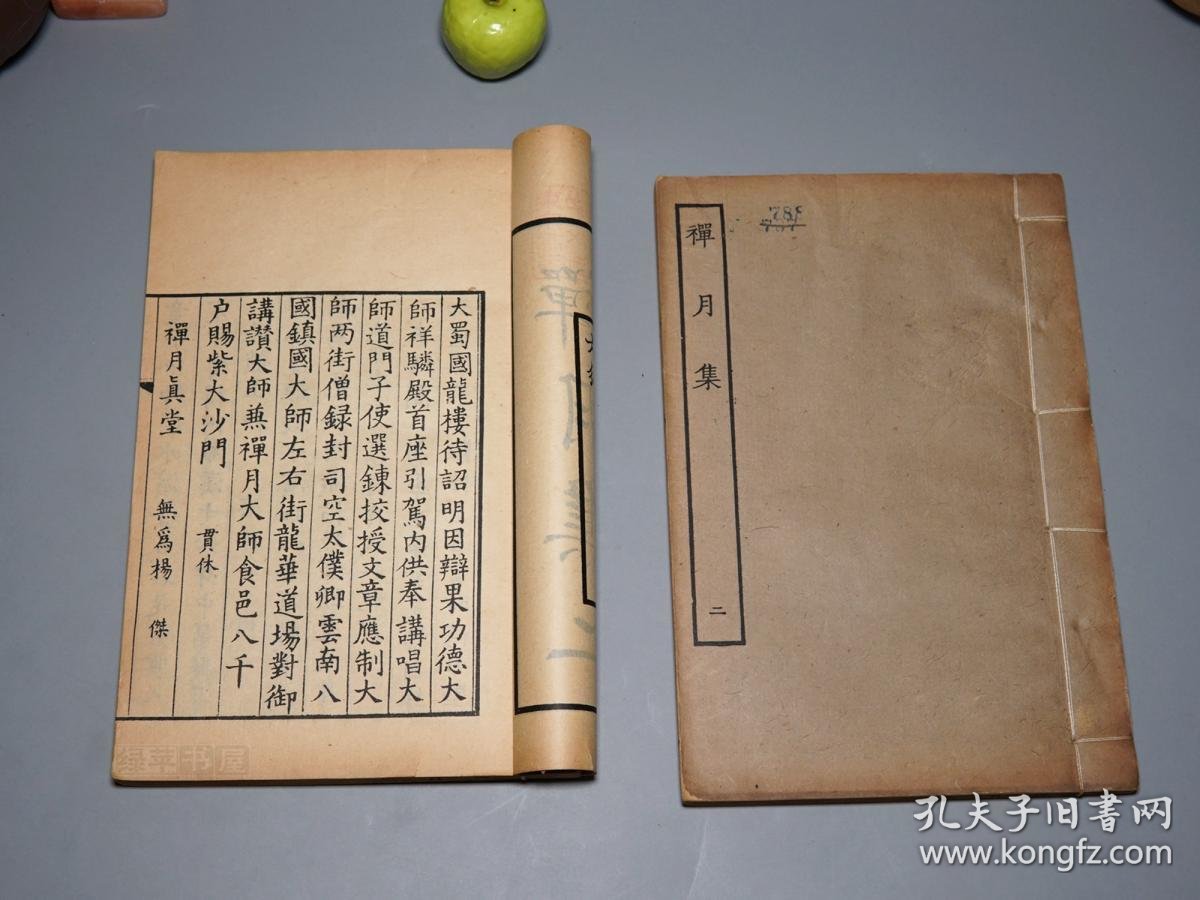 大蜀國龍樓待詔明因辯果功德大
師祥驎殿首座引駕內供奉講唱大
師道門子使選鍊挍授文章應制大
師兩街僧録封司空太僕卿雲南八
國鎮國大師左右街龍華道場對御
講讃大師兼禪月大師食邑八千
户賜紫大沙門 貫休
禪月眞堂 無爲楊 傑
禪月集
二
绿苹书屋
孔夫子旧书网
www.kongfz.com